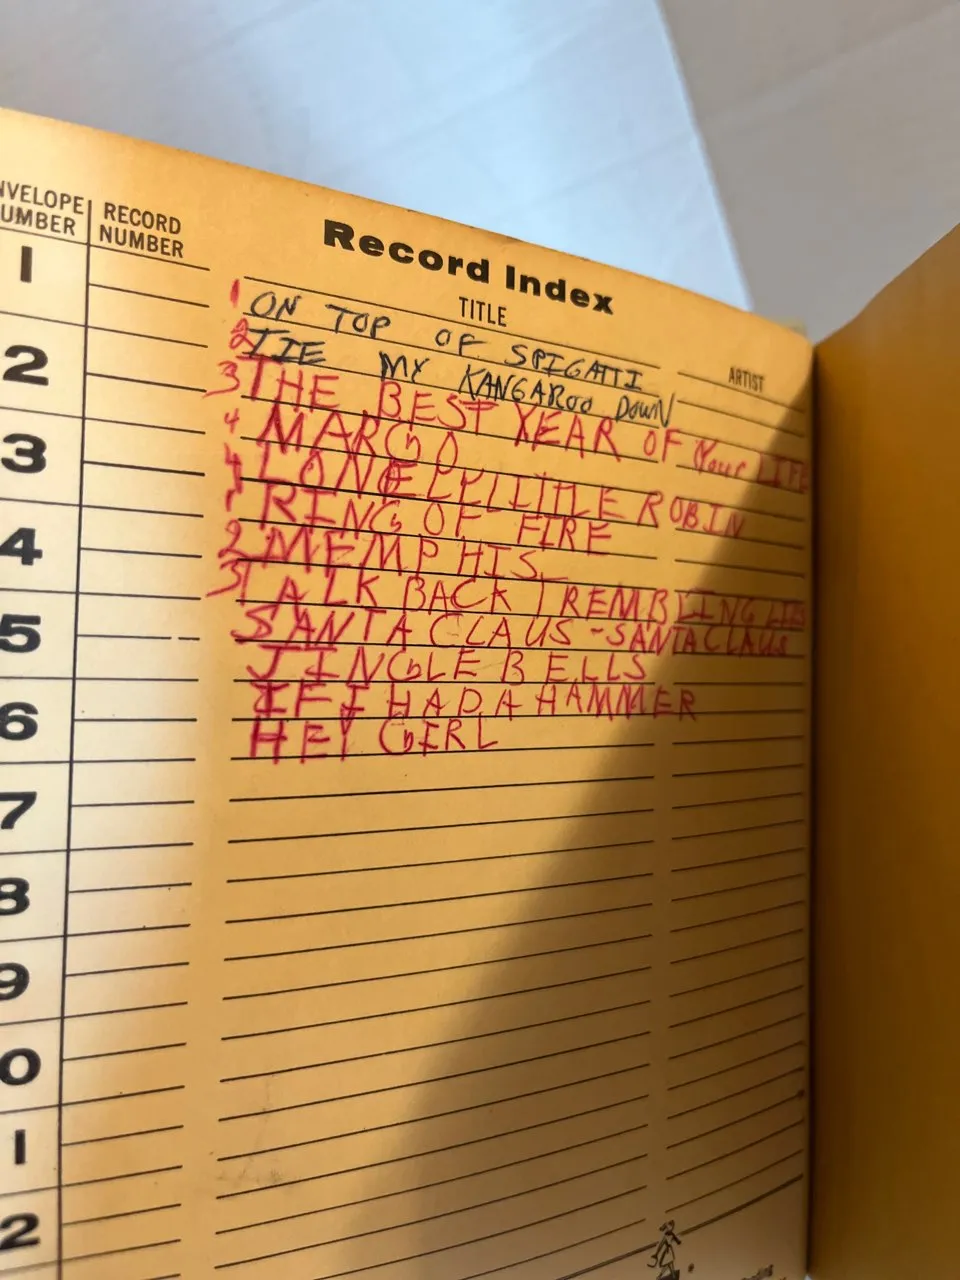 Record Index
NVELOPE UMBER
RECORD NUMBER
TITLE
ARTIST
1 ON TOP OF SPIGATTI
2 TIE MY KANGAROO DOWN
3 THE BEST YEAR OF Your LIFE
4 MARGO
4 LONELY LITTLE ROBIN
1 RING OF FIRE
2 MEMPHIS
3 TALK BACK TREMBLING LIPS
SANTA CLAUS - SANTA CLAUS
JINGLE BELLS
IF I HAD A HAMMER
HEY GIRL
1
2
3
4
5
6
7
8
9
0
1
2